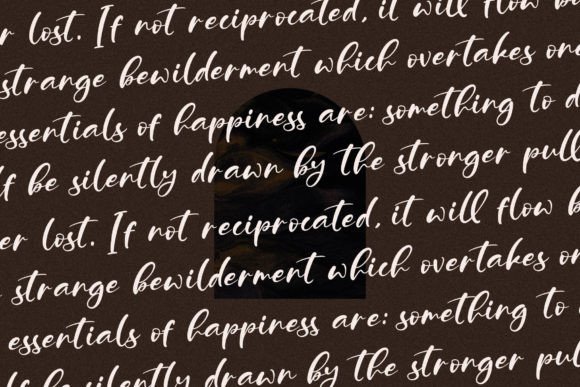 er lost. If not reciprocated, it will flow b
strange bewilderment which overtakes on
essentials of happiness are: something to d
lf be silently drawn by the stronger pull
er lost. If not reciprocated, it will flow b
strange bewilderment which overtakes on
essentials of happiness are: something to
lf be silently drawn by the stronger pul